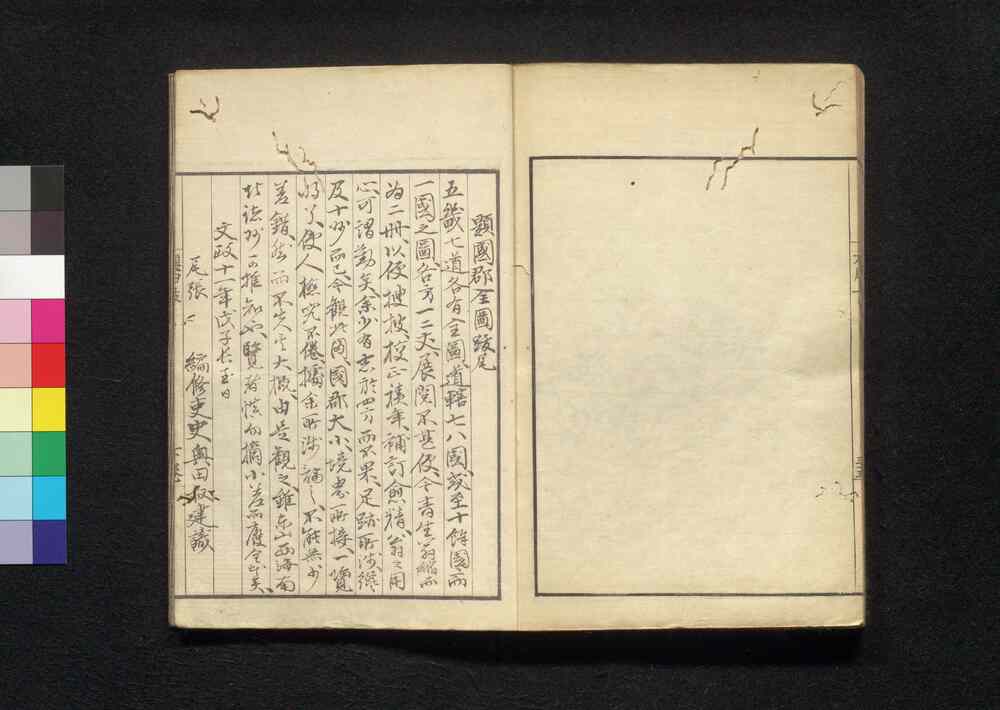 顯國郡全圖跋尾
五畿七道各有全圖道轄七八國或至十餘國而
一國之圖各方一二丈展閲不甚便今青生翁縮而
為二冊以便搜披校正積年補訂愈精翁之用
心可謂勤矣余少有志於四方而不果足跡所渉纔
及十州而已今觀此圖國郡大小境界所接一覽
了了使人極究不倦據余所渉之不能無少
差錯然而不失其大概由是觀之雖東山西海南
諸州可推知也覽者慎勿摘小差而廢全矣
文政十一年戊子
尾張 編修吏奥田叔建識